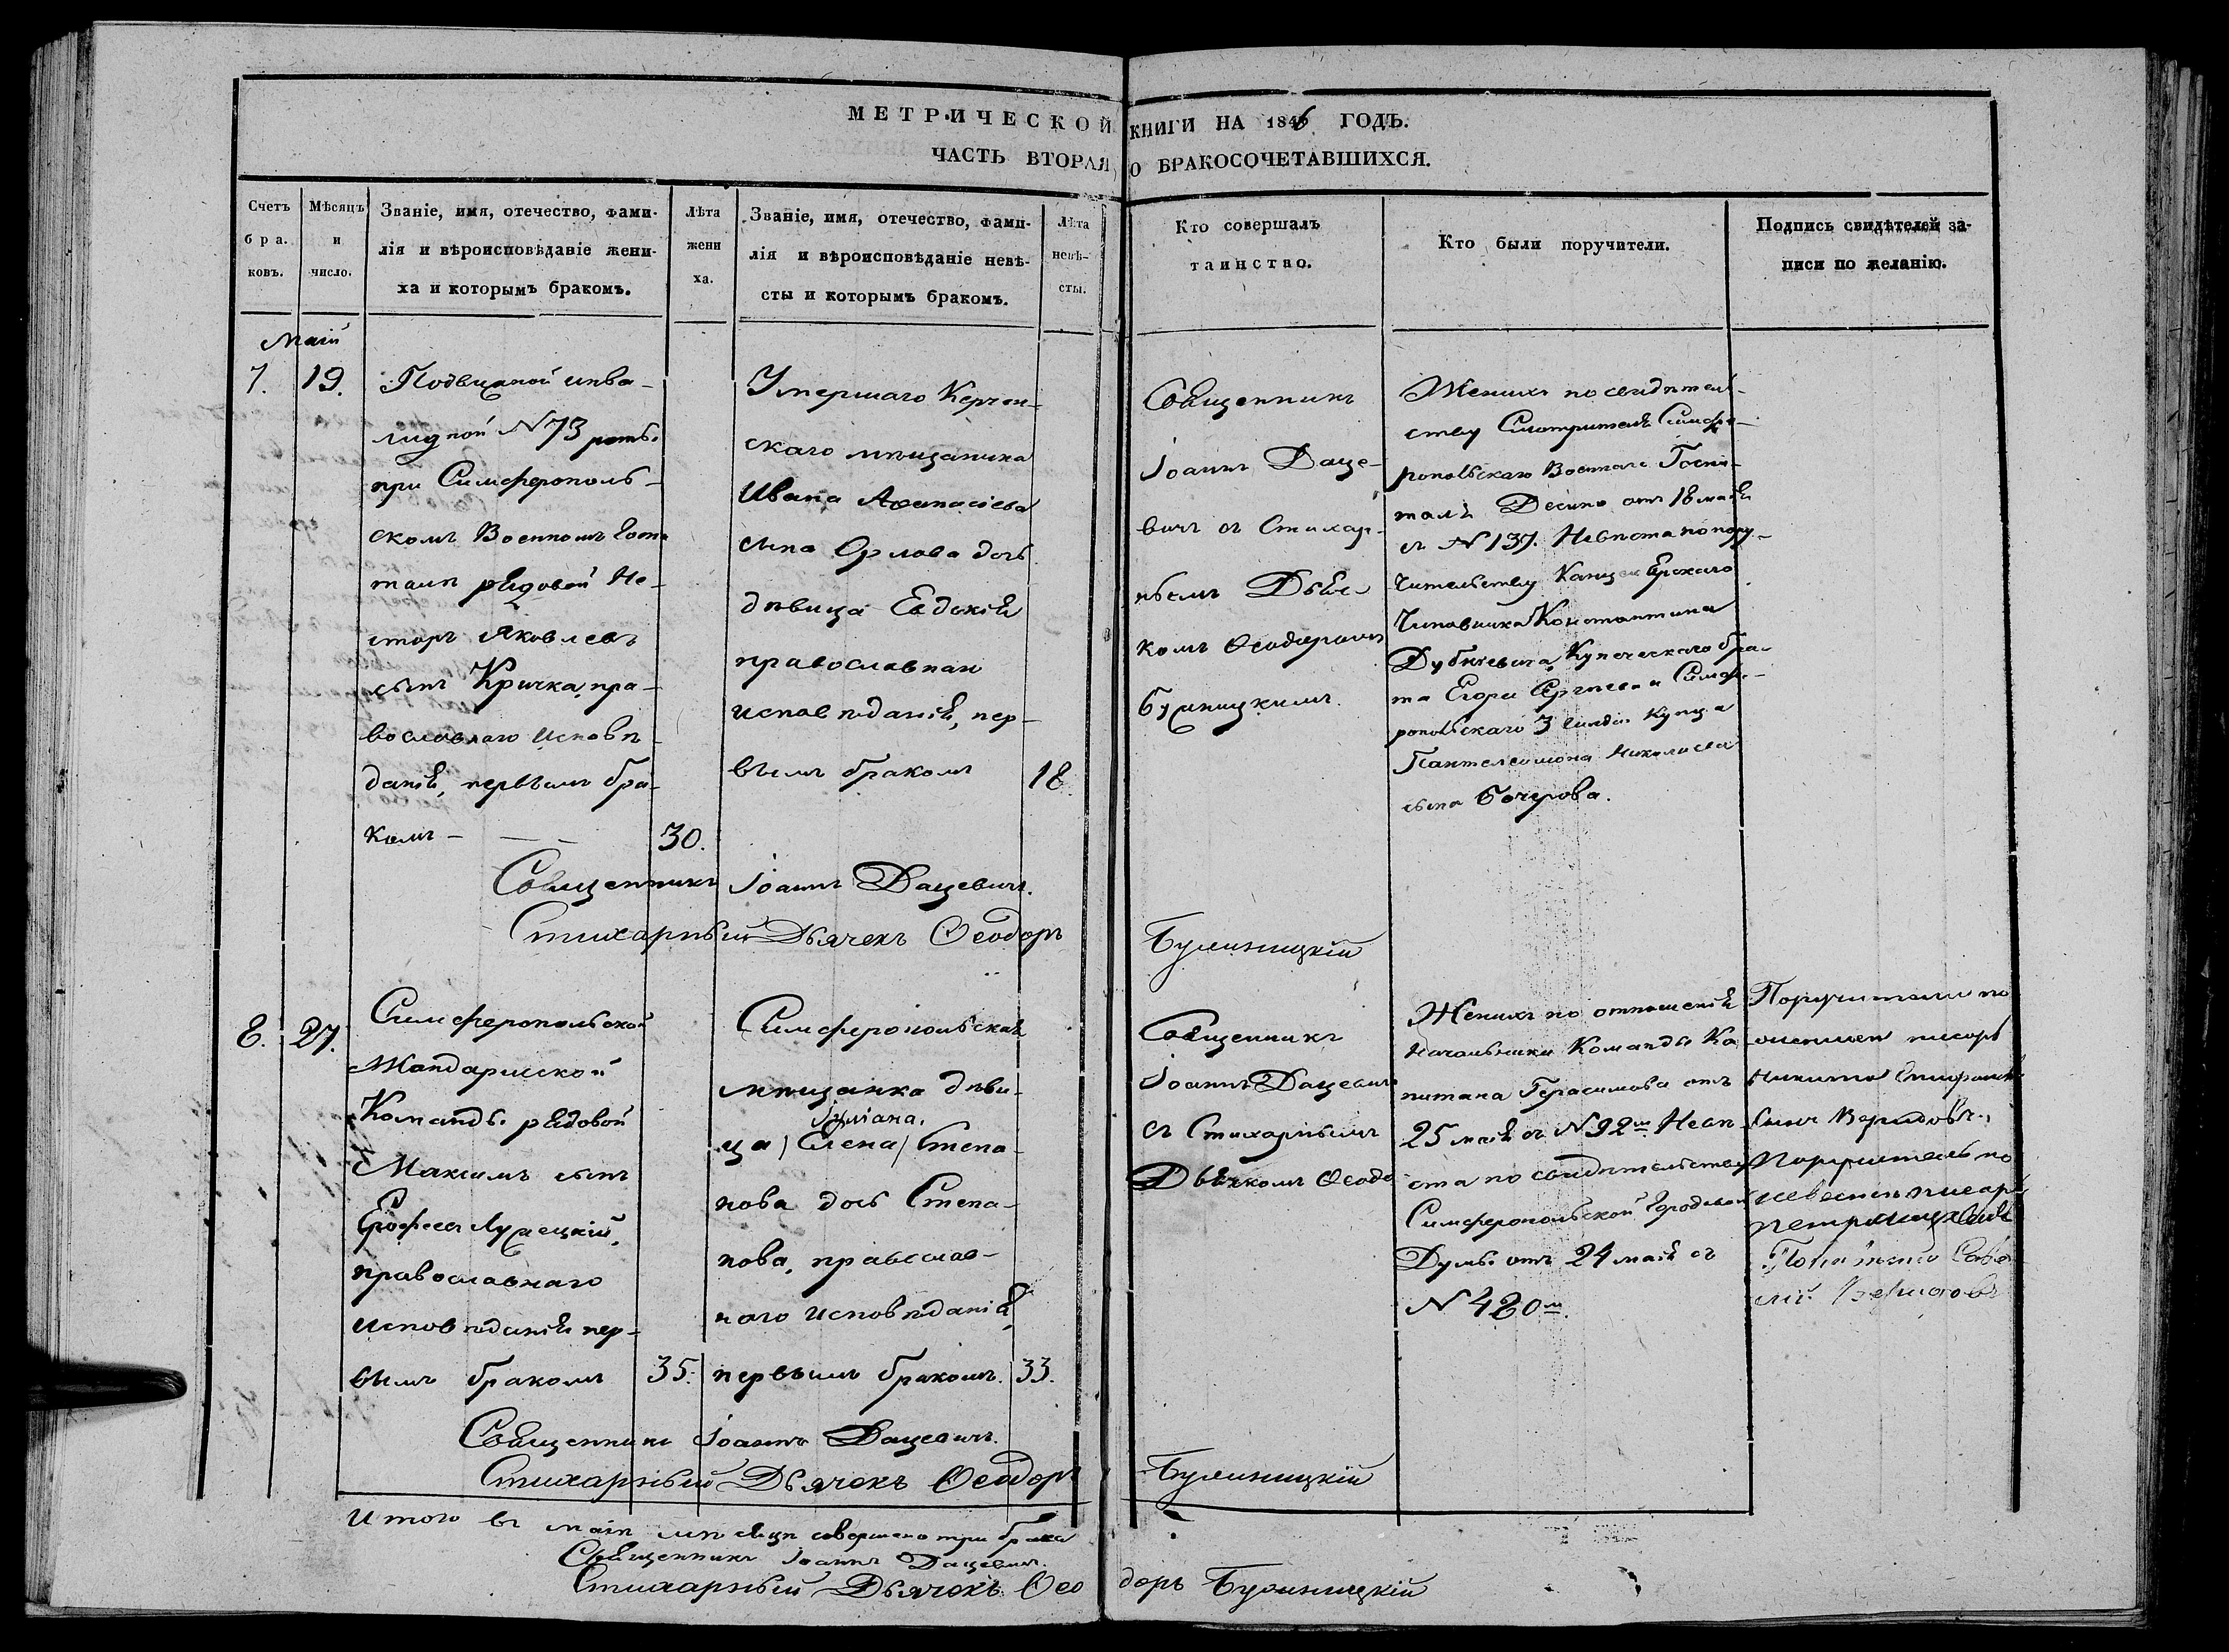 МЕТРИЧЕСКОЙ КНИГИ НА 1846 ГОДЪ.
ЧАСТЬ ВТОРАЯ, О БРАКОСОЧЕТАВШИХСЯ.
Счетъ бра-ковъ.
Мѣсяцъ и число.
Званіе, имя, отечество, фами-
лія и вѣроисповѣданіе жени-
ха и которымъ бракомъ.
Лѣта жени ха.
Званіе, имя, отечество, фами-
лія и вѣроисповѣданіе невѣ-
сты и которымъ бракомъ.
Лѣта невѣ-сты.
Кто совершалъ
таинство.
Кто были поручители.
Подпись свидѣтелей за-
писи по желанію.
Маій
7. 19.
Подвижной инва-
лидной №73 роты
при Симферополь-
скомъ Военномъ Госпи
талѣ рядовой Не-
сторъ Яковлевъ
сынъ Кричка, пра-
вославнаго исповѣ-
данія, первымъ бра-
комъ -
30.
Умершаго Керчен-
скаго мѣщанина
Ивана Афанасіева
сына Орлова дочь
дѣвица Евдокія
православнаго
исповѣданія, пер-
вымъ бракомъ
18.
Священникъ
Іоаннъ Даце-
вичъ съ Стихар-
нымъ Дьяч-
комъ Ѳеодоромъ
Женихъ по свидѣтель-
ству Смотрителя Симфе-
ропольскаго Военнаго Госпи-
таля отъ 18 мая
съ №137. Невѣста по пору-
чительству Канцелярскаго
Чиновника Константина
Купеческаго бра-
та Егора Сергѣева и Симфе-
ропольскаго 3 гильдіи купца
Пантелеимона Николаева
сына Бочерова.
Священникъ Іоаннъ Дацевичъ.
Стихарный Дьячекъ Ѳеодоръ
8. 27.
Симферопольской
Жандармской
Команды рядовой
Максимъ сынъ
православнаго
исповѣданія пер-
вымъ бракомъ
35.
Симферопольская
мѣщанка дѣви-
Іуліана.
ца (Елена) Степа-
нова дочь Степа-
нова, православ-
наго исповѣданія,
первымъ бракомъ.
33.
Священникъ
Іоаннъ Дацевичъ
съ Стихарнымъ
Дьячкомъ Ѳеодо
Женихъ по отношенію
Начальника Команды Ка
питана Герасимова отъ
25 мая съ №92мъ. Невѣ
ста по свидѣтельству
Симферопольской Городской
Думы отъ 24 мая съ
№ 420м.
Поручители по
женихѣ писарь
Никита
сынъ
Поручитель по
невестѣ писарь
Священникъ Іоаннъ Дацевичъ.
Стихарный Дьячекъ Ѳеодоръ
Итого въ маіѣ мѣсяцѣ совершено три брака
Священникъ Іоаннъ Дацевичъ.
Стихарный Дьячекъ Ѳеодоръ